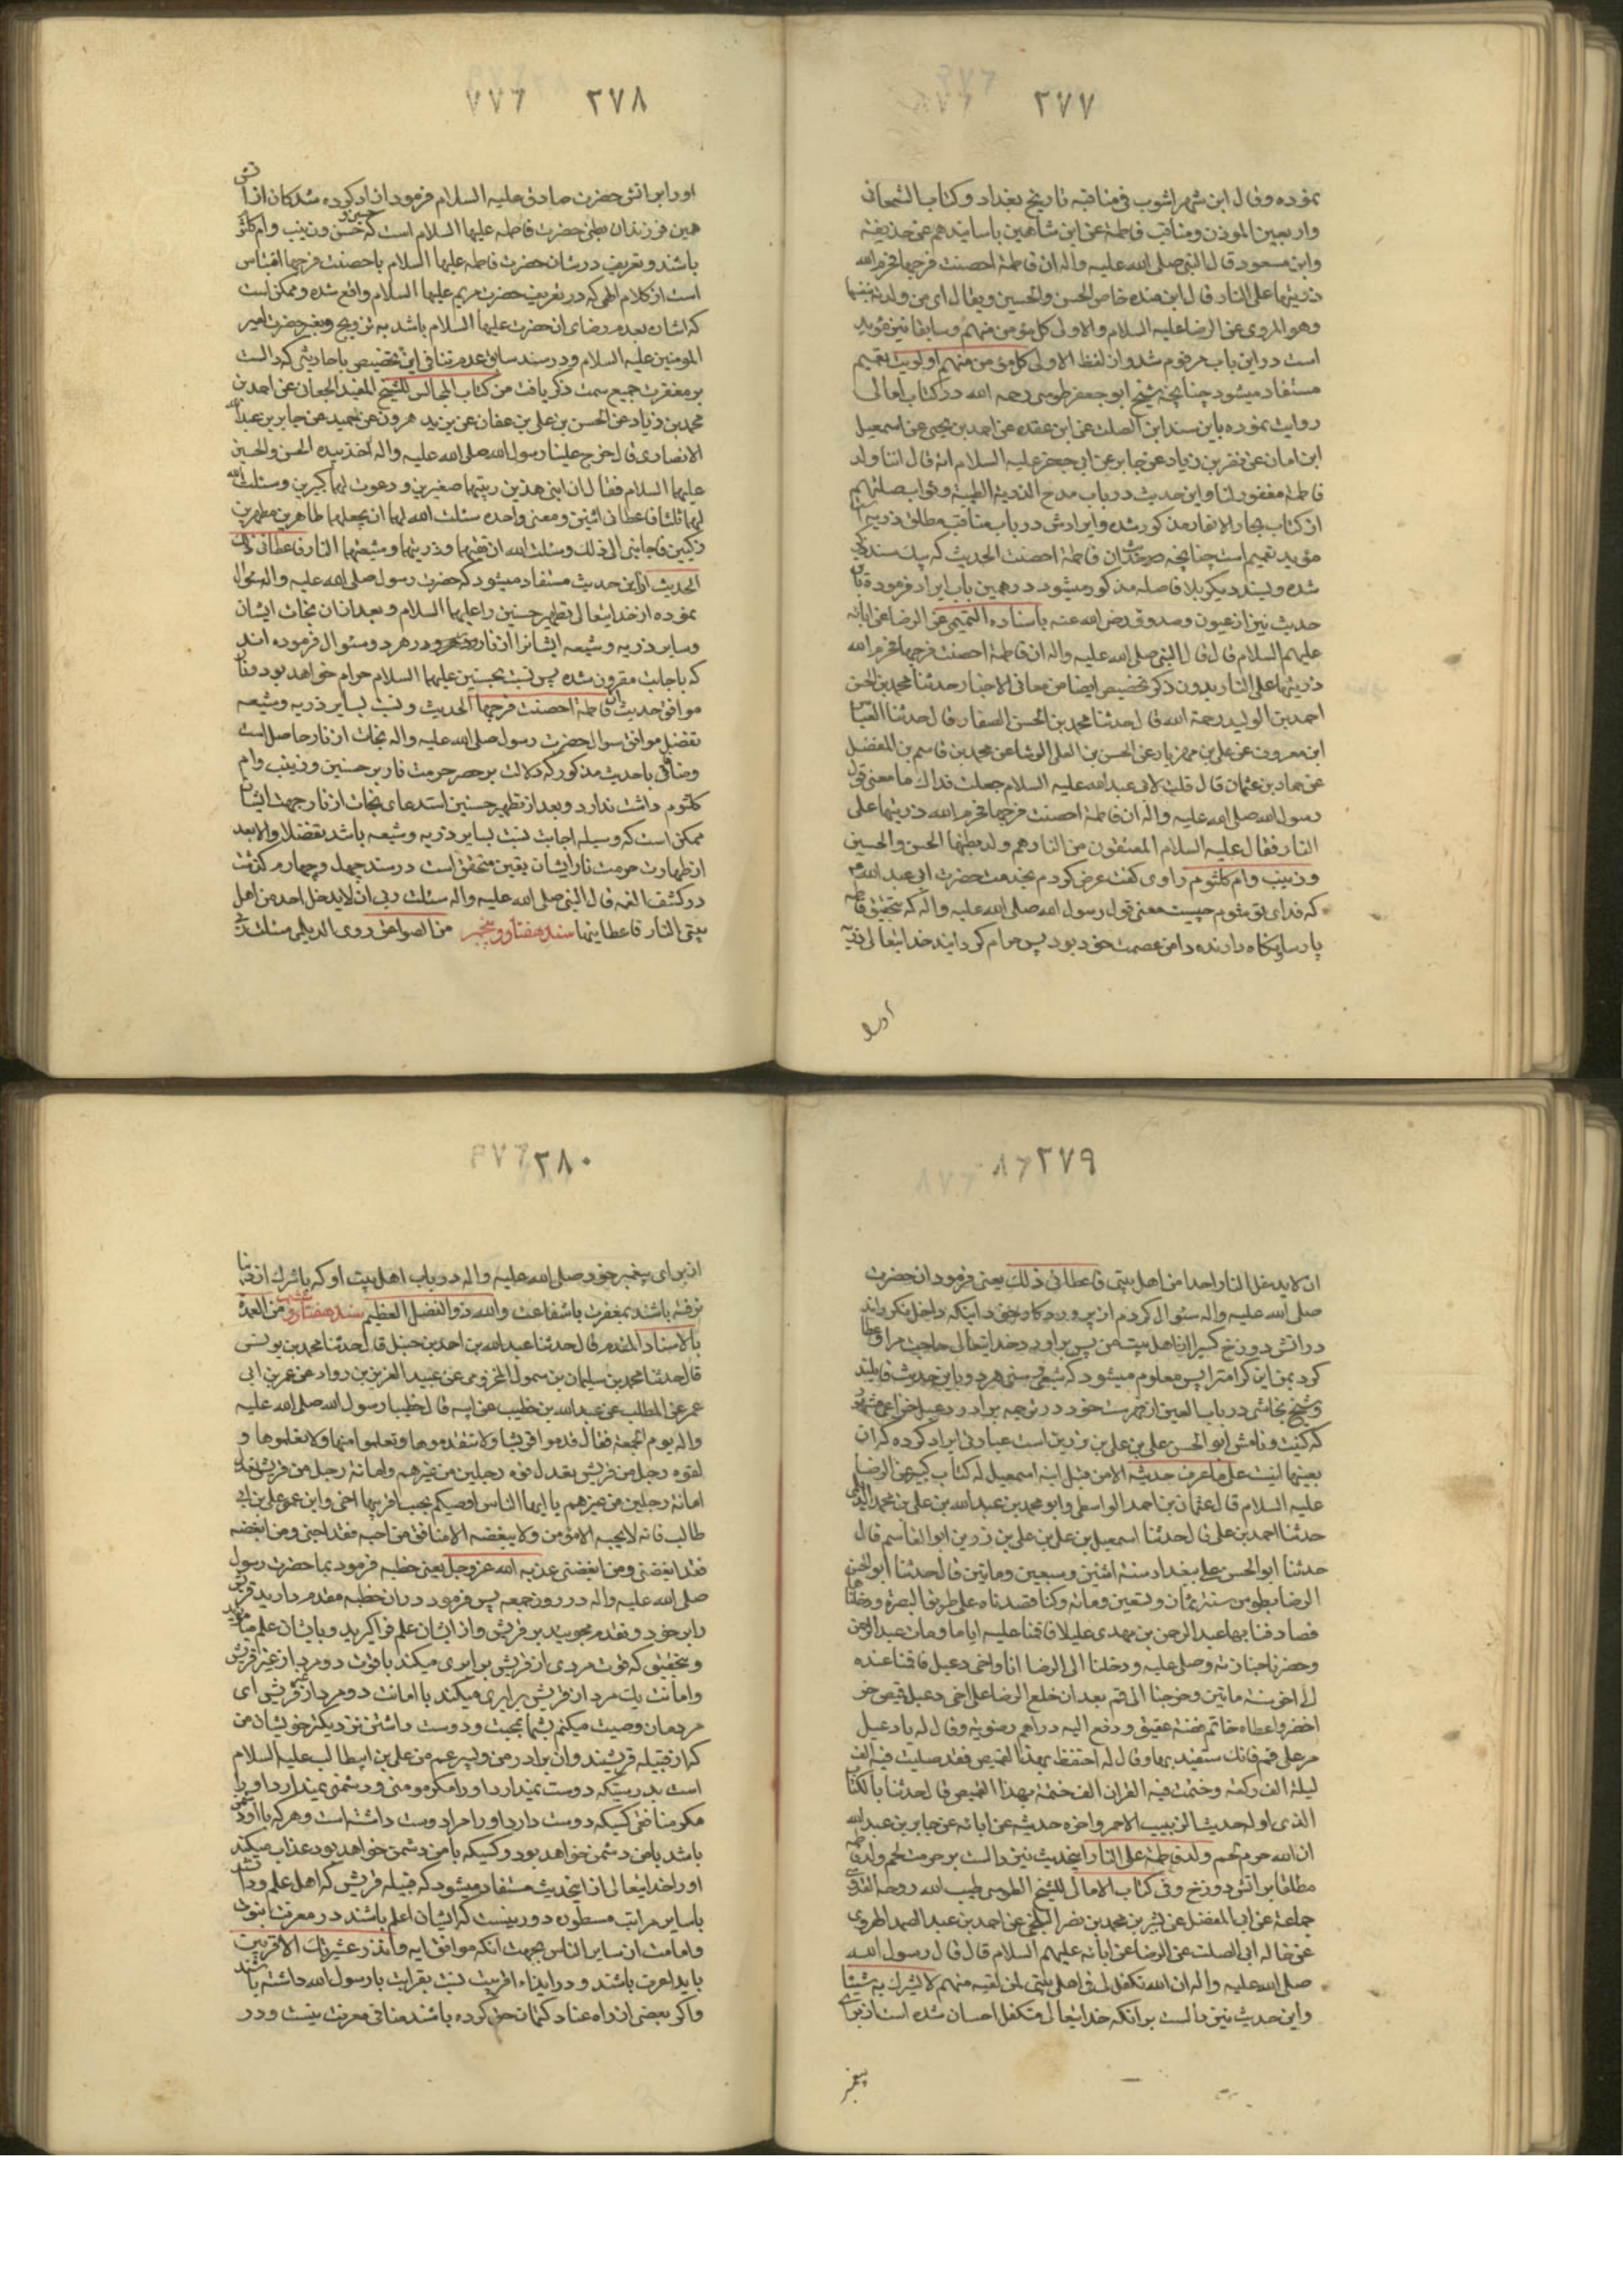 ۲۷۷
نموده وقال ابن شهر اشوب فی مناقبه تاریخ بغداد وکتاب السمعانی
واربعین الموذن ومناقب فاطمة عن ابن شاهین باسانیدهم عن حذیفة
وابن مسعود قال النبی صلی الله علیه واله ان فاطمة احصنت فرجها فحرم الله
ذریتها علی النار قال ابن منده خاص الحسن والحسین ویقال ای من ولدته بنفسها
وهو المروی عن الرضا علیه السلام والاولی کل مؤمن منهم وسابقا نیز
است در این باب مرقوم شد واز لفظ الاولی کل مؤمن منهم اولویت تعمیم
مستفاد میشود چنانچه شیخ ابو جعفر طوسی رحمه الله در کتاب امالی
روایت نموده باین سند ابن الصلت عن ابن عقده عن احمد بن یحیی عن اسمعیل
ابن ابان عن نضر بن زیاد عن جابر عن ابی جعفر علیه السلام انه قال اننا ولد
فاطمة مغفور لنا واین حدیث در باب مدح الذریة الطیبة وثواب صلتهم
از کتاب بحار الانوار مذکور شده وایرادش در باب مناقب مطلق ذریه
مؤید تعمیم است چنانچه ان فاطمة احصنت الحدیث که بیک سند
شده وبسند دیکر بلا فاصله مذکور میشود در همین باب ایراد فرموده
حدیث نیز از عیون صدوق رضی الله عنه باسناده التمیمی عن الرضا عن ابائه
علیهم السلام قال قال النبی صلی الله علیه واله ان فاطمة احصنت فرجها فحرم الله
ذریتها علی النار بدون ذکر تخصیص ایضا من معانی الاخبار حدثنا محمد بن الحسن
احمد بن الولید رحمة الله قال حدثنا محمد بن الحسن الصفار قال حدثنا العباس
ابن معروف عن علی بن مهزیار عن الحسن بن العلی الوشا عن محمد بن قاسم بن المفضل
عن حماد بن عثمان قال قلت لابی عبدالله علیه السلام جعلت فداك ما معنی قول
رسول الله صلی الله علیه واله ان فاطمة احصنت فرجها فحرم الله ذریتها علی
النار فقال علیه السلام المعتقون من النار هم ولد بطنها الحسن والحسین
وزینب وام کلثوم راوی کفت عرض کردم بخدمت حضرت ابی عبدالله
که فدای تو شوم چیست معنی قول رسول الله صلی الله علیه واله که بتحقیق فاطمه
پارسا ونکاه دارنده دامن عصمت خود بود پس حرام کردانید خدایتعالی ذریه
اورا
۲۷۸
اورا بر اتش حضرت صادق علیه السلام فرمود ازاد کرده شدکان از اتش
همین فرزندان بطنی حضرت فاطمه علیها السلام است که حسن وحسین وزینب وام کلثوم
باشند وتعریف در شان حضرت فاطمه علیها السلام باحصنت فرجها اقتباس
است از کلام الهی که در تعریف حضرت مریم علیها السلام واقع شده وممکن است
که اشاره بعدم رضای ان حضرت علیها السلام باشد به تزویج وبغیر حضرت امیر
المومنین علیه السلام ودر سند سابق عدم تنافی این تخصیص باحادیثی که دالست
بر مغفرت جمیع سمت ذکر یافت من کتاب المجالس للشیخ المفید الجعان عن احمد بن
محمد بن زیاد عن الحسن بن علی بن عفان عن یزید هرون عن حمید عن جابر بن عبد الله
الانصاری قال خرج علینا رسول الله صلی الله علیه واله اخذ بیده الحسن والحسین
علیهما السلام فقال ان ابنی هذین ربیتهما صغیرین ودعوت لهما کبیرین وسئلت الله
لهما ثلثا فاعطانی اثنین ومعنی واحدة سئلت الله لهما ان یجعلهما طاهرین مطهرین
زکیین فاجابنی الی ذلك وسئلت الله ان یقیهما وذریتهما وشیعتهما النار فاعطانی ذلك
الحدیث از این حدیث مستفاد میشود که حضرت رسول صلی الله علیه واله سؤال
نموده از خدایتعالی تطهیر حسنین را علیهما السلام وبعد از ان نجات ایشان
وسایر ذریه وشیعه ایشانرا از نار ودر هر دو سئوال فرموده اند
که باجابت مقرون شده پس نسبت بحسنین علیهما السلام حرام خواهد بود
موافق حدیث ان فاطمة احصنت فرجها الحدیث ونسبت بسایر ذریه وشیعه
تفضل موافق سوال حضرت رسول صلی الله علیه واله نجات از نار حاصل است
ومنافی باحدیث مذکور که دلالت بر حصر حرمت نار بر حسنین وزینب وام
کلثوم داشت ندارد وبعد از تطهیر حسنین استدعای نجات از نار جهت ایشان
ممکن است که وسیله اجابت نسبت بسایر ذریه وشیعه باشد تفضلا والا بعد
از طهارت حرمت نار ایشان یقین متحقق است در سند چهل وچهارم کذشت
در کشف الغمه قال النبی صلی الله علیه واله سئلت ربی ان لا یدخل احد من اهل
بیتی النار فاعطانیها سند هفتاد وپنجم من الصواعق روی الدیلمی سئلت ربی
۲۷۹
ان لا یدخل النار احدا من اهل بیتی فاعطانی ذلك یعنی فرمود ان حضرت
صلی الله علیه واله سئوال کردم از پروردکار خود اینکه داخل نکرداند
در اتش دوزخ کسیرا از اهل بیت من پس بر اورد خدایتعالی حاجت مرا وعطا
کرد بمن این کرامترا پس معلوم میشود که شیعی وسنی هر دو باین حدیث قایلند
وشیخ نجاشی در باب العین از فهرست خود در ترجمه برادر دعبل خزاعی
که کنیت ونامش ابو الحسن علی بن علی بن رزین است عبارتی ایراد کرده که ان
بعینها اینست علی ما عرف حدیثه الا من قبل ابنه اسمعیل له کتاب کبیر عن الرضا
علیه السلام قال عثمان بن احمد الواسطی وابو محمد بن عبدالله بن علی بن محمد
حدثنا احمد بن علی قال حدثنا اسمعیل بن علی بن علی بن رزین ابو القاسم قال
حدثنا ابو الحسن علی ببغداد سنة اثنین وسبعین وماتین قال حدثنا ابو الحسن
الرضا بطوس سنة ثمان وتسعین ومائة وکنا قصدناه علی طریق البصرة ودخلناها
فصادفنا بها عبد الرحمن بن مهدی علیلا فاقمنا علیه ایاما ومات عبد الرحمن
وحضرنا جنازته وصلی علیه ودخلنا الی الرضا انا واخی دعبل فاقمنا عنده
الی اخر سنة ماتین وخرجنا الی قم بعد ان خلع الرضا علی اخی دعبل قمیص خز
اخضر واعطاه خاتم فضة عقیق ودفع الیه دراهم رضویة وقال له یا دعبل
مر علی قم فانك ستفید بها وقال له احتفظ بهذا القمیص فقد صلیت فیه الف
لیلة الف رکعة وختمت فیه القران الف ختمة بهذا القمیص قال حدثنا بالکتاب
الذی اوله حدیث الزبیب الاحمر واخره حدیثه عن ابائه عن جابر بن عبدالله
ان الله حرم لحم ولد فاطمة علی النار اینحدیث نیز دالست بر حرمت لحم ولد فاطمه
مطلقا بر اتش دوزخ وفی کتاب الامالی للشیخ الطوسی طیب الله روحه القدوسی
جماعة عن ابی المفضل عن بشر بن محمد بن نصر البلخی عن احمد بن عبد الصمد الهروی
عن خاله ابی الصلت عن الرضا عن ابائه علیهم السلام قال قال رسول الله
صلی الله علیه واله ان الله تکفل لی فی اهل بیتی لمن لقیه منهم لا یشرك به شیئا
واین حدیث نیز دالست بر انکه خدایتعالی متکفل احسان شده است از برای
پیغمبر
۲۸۰
از برای پیغمبر خود صلی الله علیه واله در باب اهل بیت او که باشرك از دنیا
نرفته باشند بمغفرت یا شفاعت والله ذو الفضل العظیم سند هفتاد وششم من العمدة
بالاسناد المقدم قال حدثنا عبدالله بن احمد بن حنبل قال حدثنا محمد بن یونس
قال حدثنا محمد بن سلیمان بن سمول المخزومی عن عبید العزیز بن رواد عن عمر بن ابی
عمر عن المطلب عن عبدالله بن خطیب عن ابیه قال خطبنا رسول الله صلی الله علیه
واله یوم الجمعة فقال قدموا قریشا ولا تتقدموها وتعلموا منها ولا تعلموها و
لقوة رجل من قریش تعدل قوة رجلین من غیرهم وامانة رجل من قریش تعدل
امانة رجلین من غیرهم یا ایها الناس اوصیکم بحب اقربیها اخی وابن عمی علی بن ابی
طالب فانه لا یحبه الا مؤمن ولا یبغضه الا منافق من احبه فقد احبنی ومن ابغضه
فقد ابغضنی ومن ابغضنی عذبه الله عز وجل یعنی خطبه فرمود بما حضرت رسول
صلی الله علیه واله در روز جمعه پس فرمود در ان خطبه مقدم دارید قریش
را بر خود وتقدم مجویید بر قریش واز ایشان علم فرا کیرید وبایشان علم
وبتحقیق که قوت مردی از قریش برابری میکند با قوت دو مرد از غیر قریش
وامانت یك مرد از قریش برابری میکند با امانت دو مرد از غیر قریش ای
مردمان وصیت میکنم بشما بمحبت ودوست داشتن نزدیکتر خویشان من
که از قبیله قریشند وان برادر من وپسر عم من علی بن ابیطالب علیه السلام
است بدرستیکه دوست نمیدارد اورا مکر مومنی ودشمنی نمیدارد اورا
مکر منافقی کسیکه دوست دارد اورا مرا دوست داشته است وهر که با او دشمن
باشد بامن دشمن خواهد بود وکسیکه بامن دشمن خواهد بود عذاب میکند
اورا خدایتعالی از اینحدیث مستفاد میشود که قبیله قریش که اهل علم
باسایر مراتب مسطوره دور نیست که ایشان اعلم باشند در معرفت نبوت
وامامت از سایر الناس بجهت انکه موافق ایه وانذر عشیرتك الاقربین
باید اعرف باشند ودر ابنداء اقربیت نسبت بقرابت با رسول الله داشته باشند
واکر بعضی از راه عناد کتمان حق کرده باشند منافی معرفت نیست ودر